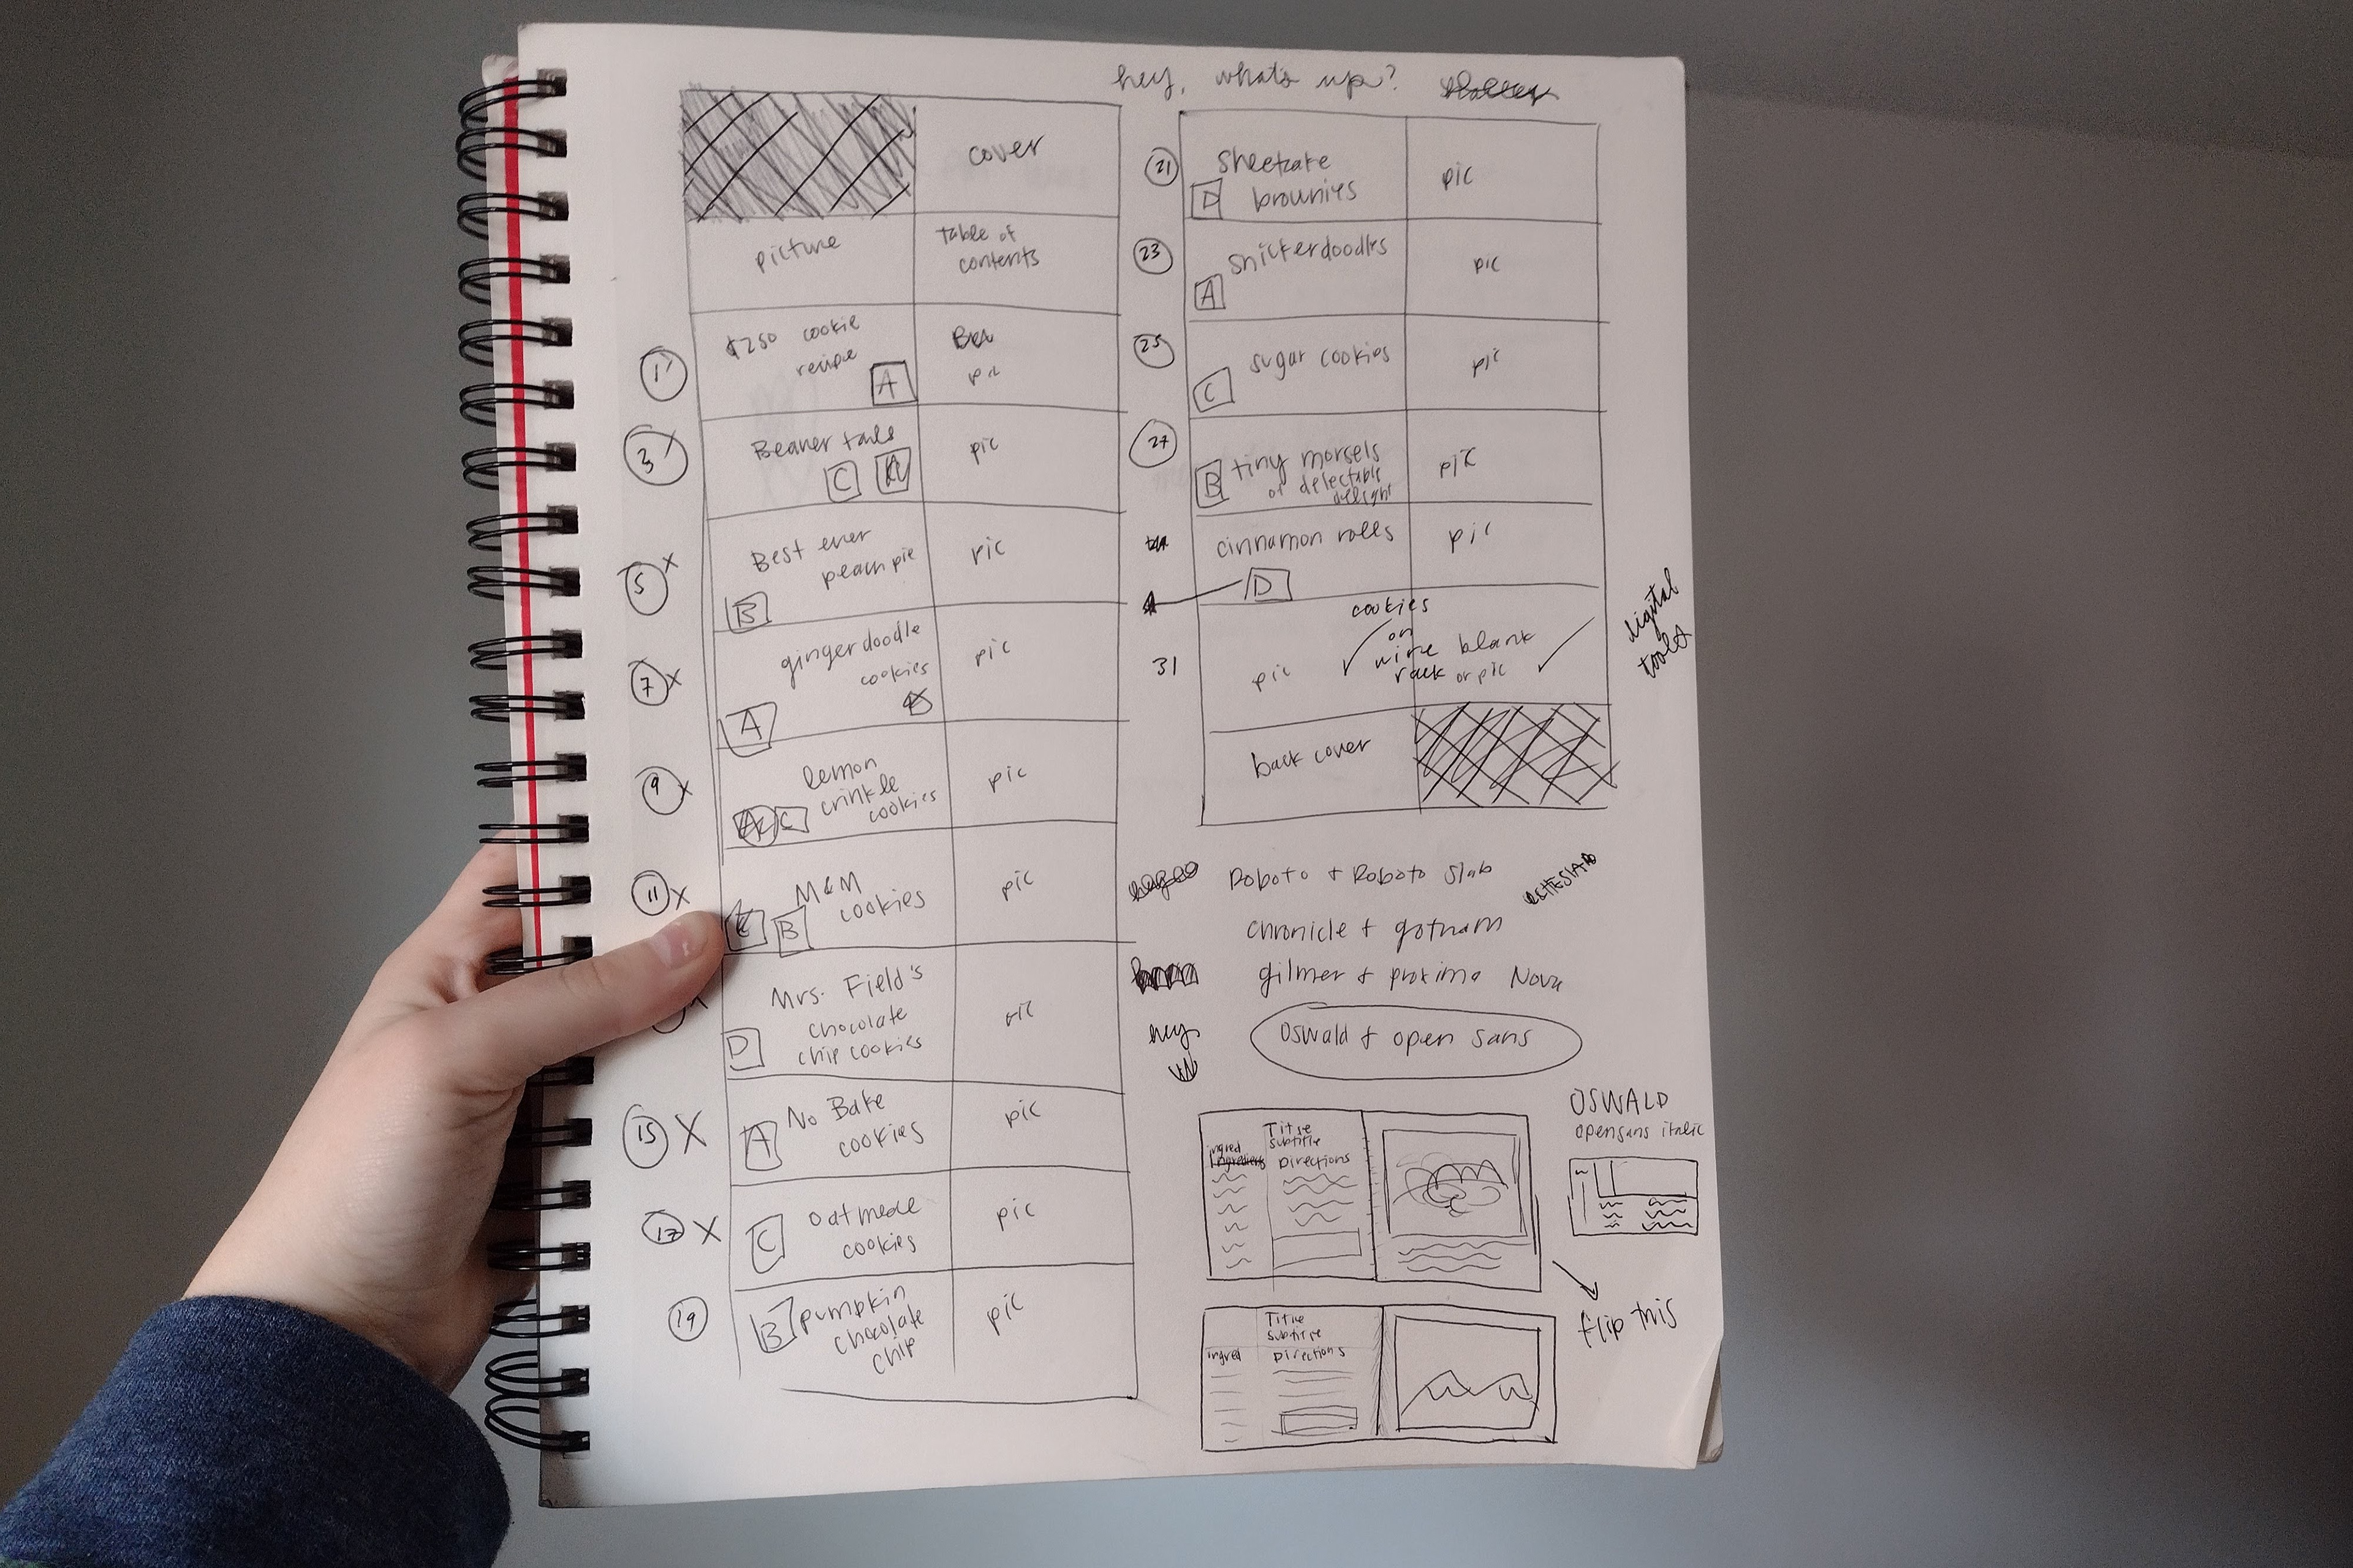 hey, what's up?
cover
picture
table of
contents
1
$250 cookie
recipe
A
pic
3
Beaver tails
C
pic
5 x
Best ever
peach pie
B
pic
7 x
gingerdoodle
cookies
A
pic
9 x
lemon
crinkle
cookies
C
pic
11 x
M&M
cookies
B
pic
Mrs. Field's
chocolate
chip cookies
D
pic
15 X
No Bake
cookies
A
pic
17 X
oatmeal
cookies
C
pic
19
pumpkin
chocolate
chip
B
pic
21
sheetcake
brownies
D
pic
23
snickerdoodles
A
pic
25
sugar cookies
C
pic
27
tiny morsels
of delectable
delight
B
pic
cinnamon rolls
D
pic
31
pic
cookies
on
wire
rack
blank
or pic
back cover
digital
tools
Roboto + Roboto Slab
chronicle + gotham
gilmer + proxima Nova
hey
Oswald + open sans
OSWALD
opensans italic
ingred
Title
subtitle
Directions
flip this
Title
subtitle
ingred
Directions